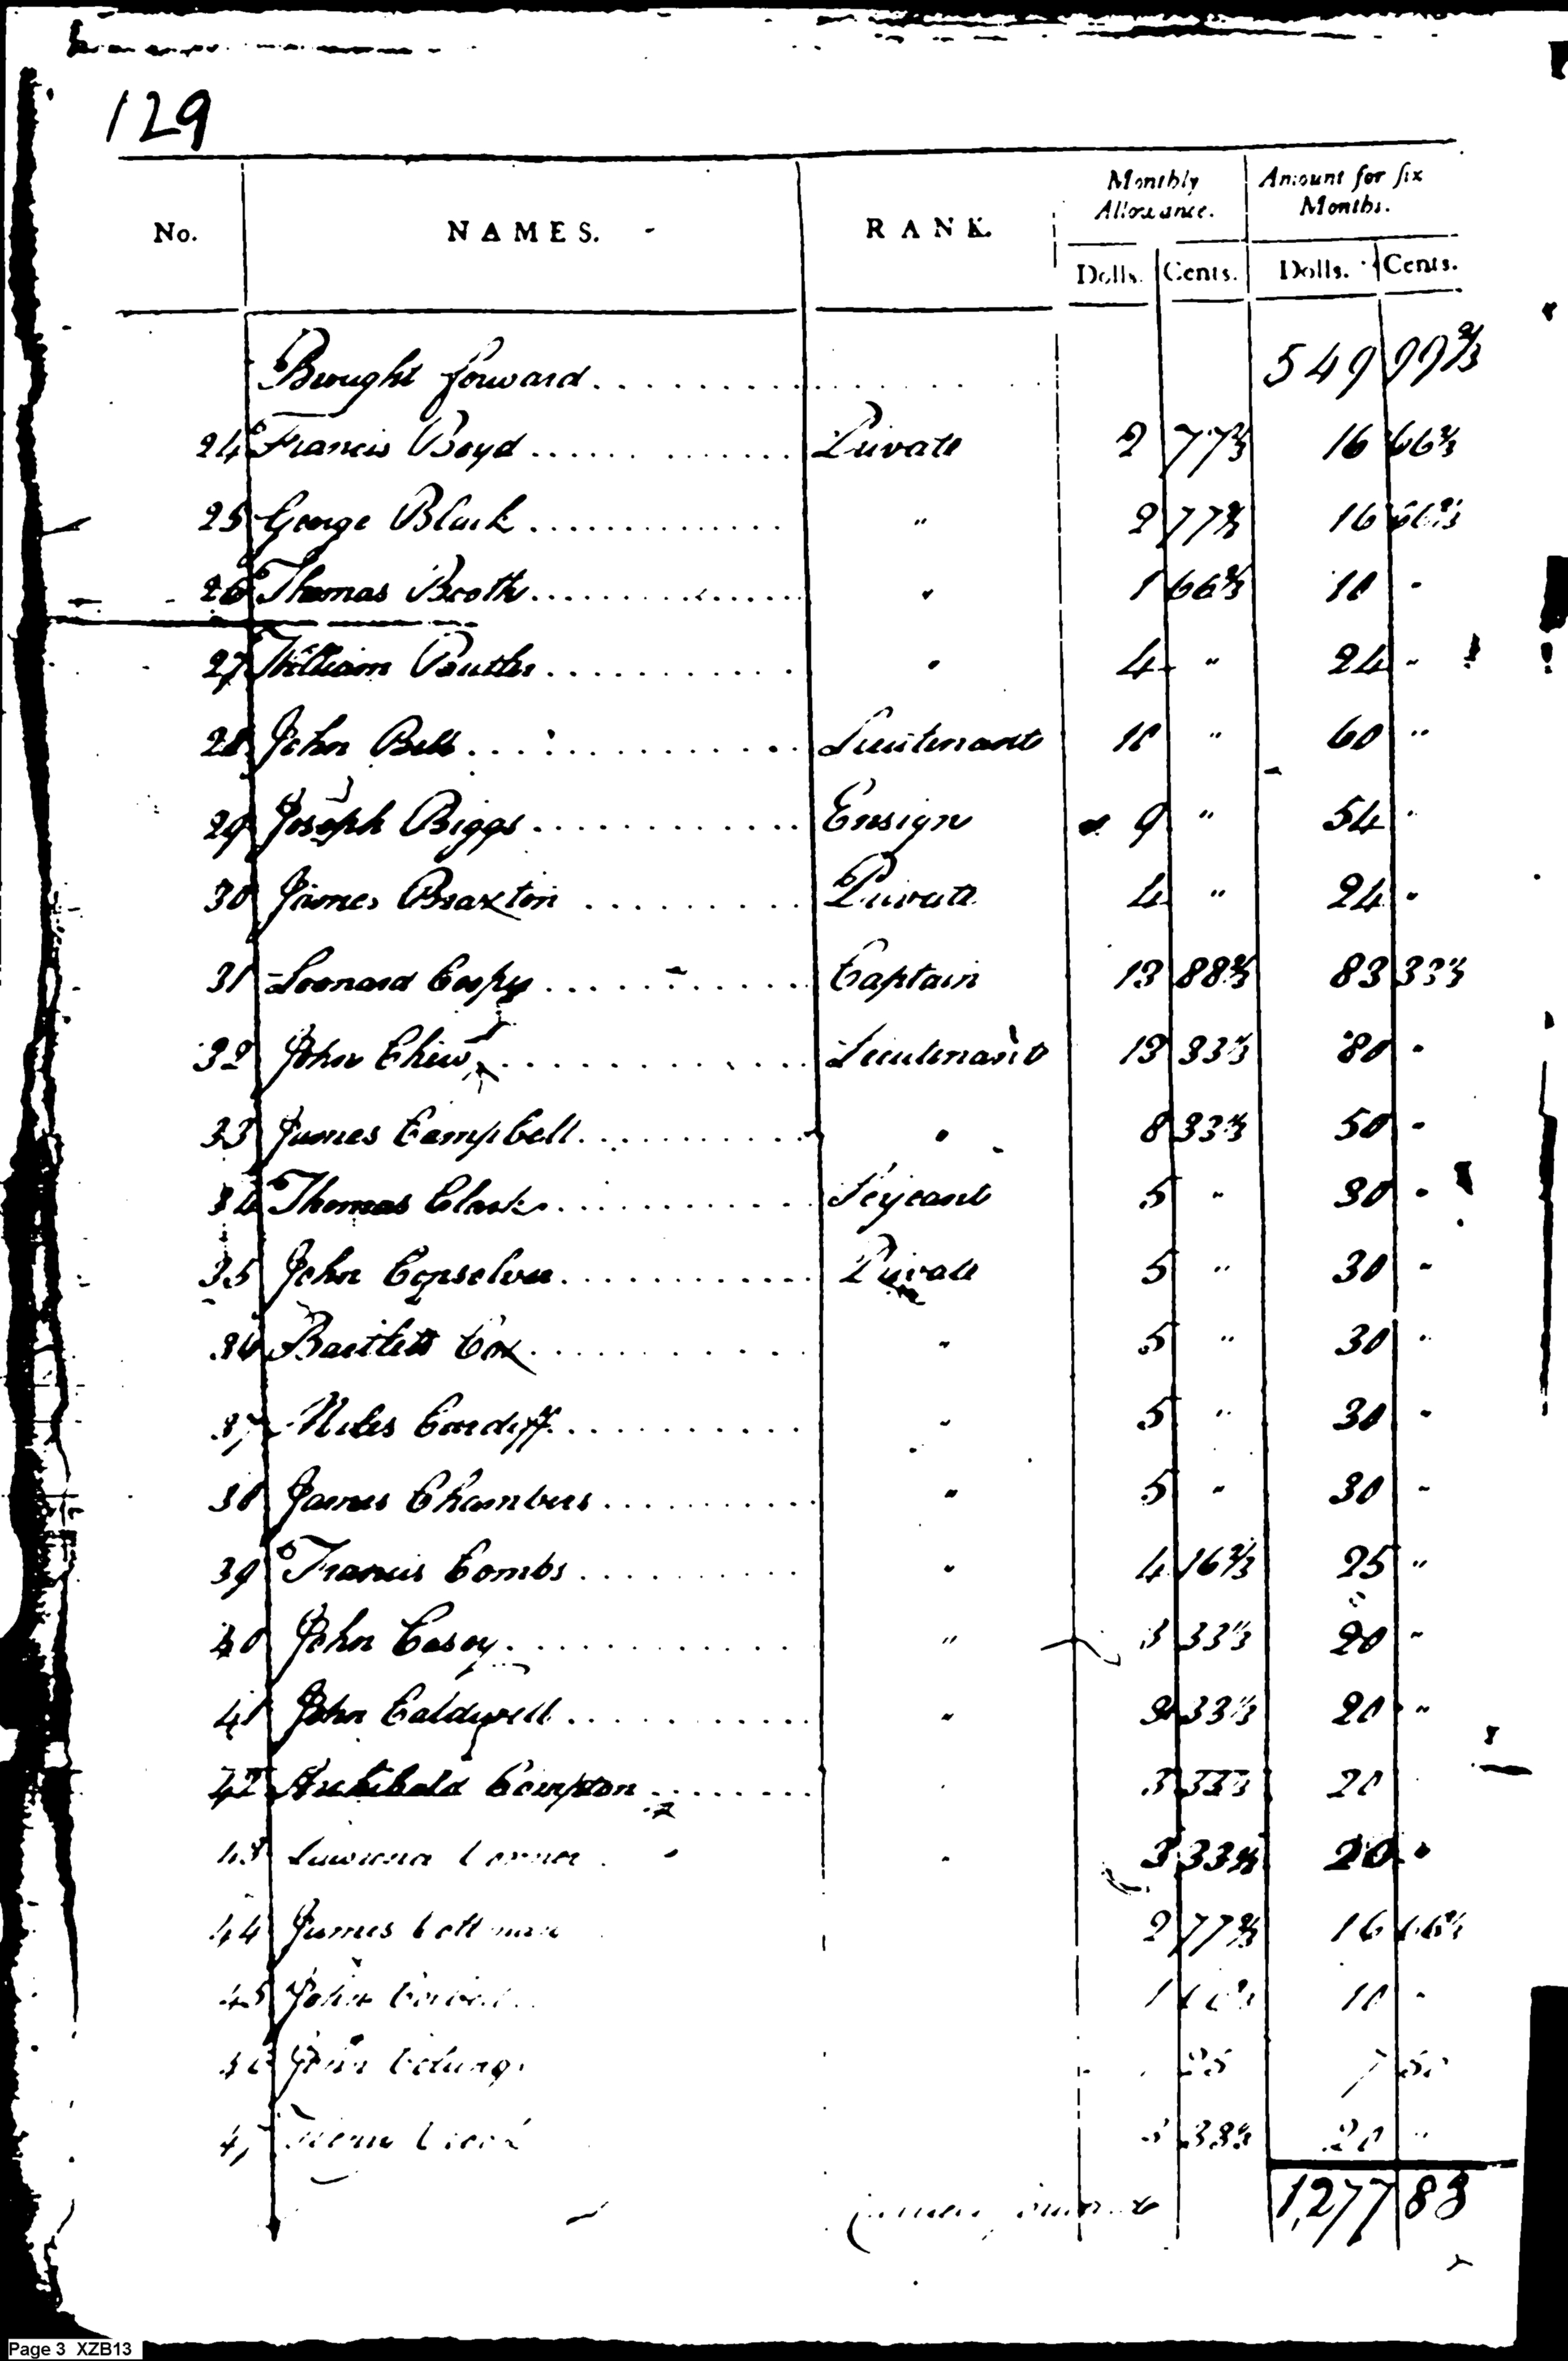 129
No. NAMES. RANK. Monthly Allowance. Amount for six Months.
Dolls. Cents. Dolls. Cents.
Brought forward 549 99 2/3
24 Francis Boyd Private 2 77 2/3 16 66 2/3
25 George Black " 2 77 2/3 16 66 2/3
26 Thomas Booth " 1 66 2/3 10 "
27 William Butler " 4 " 24 "
28 John Bell Lieutenant 10 " 60 "
29 Joseph Biggs Ensign 9 " 54 "
30 James Braxton Private 4 " 24 "
31 Leonard Captain 13 88 2/3 83 33 1/3
32 John Chew Lieutenant 13 33 1/3 80 "
33 James Campbell " 8 33 1/3 50 "
34 Thomas Clark Serjeant 5 " 30 "
35 John Private 5 " 30 "
36 Bartlett Cox " 5 " 30 "
37 Miles Cardiff " 5 " 30 "
38 James Chambers " 5 " 30 "
39 Francis Combs " 4 16 2/3 25 "
40 John Casey " 3 33 1/3 20 "
41 John Caldwell " 3 33 1/3 20 "
42 Archibald Compton " 3 33 1/3 20
43 " 3 33 1/3 20 "
44 James 2 77 2/3 16 66 2/3
45 John 1 10 "
46 25 1 50
47 3 33 1/3 20 "
1,277 83
Page 3 XZB13